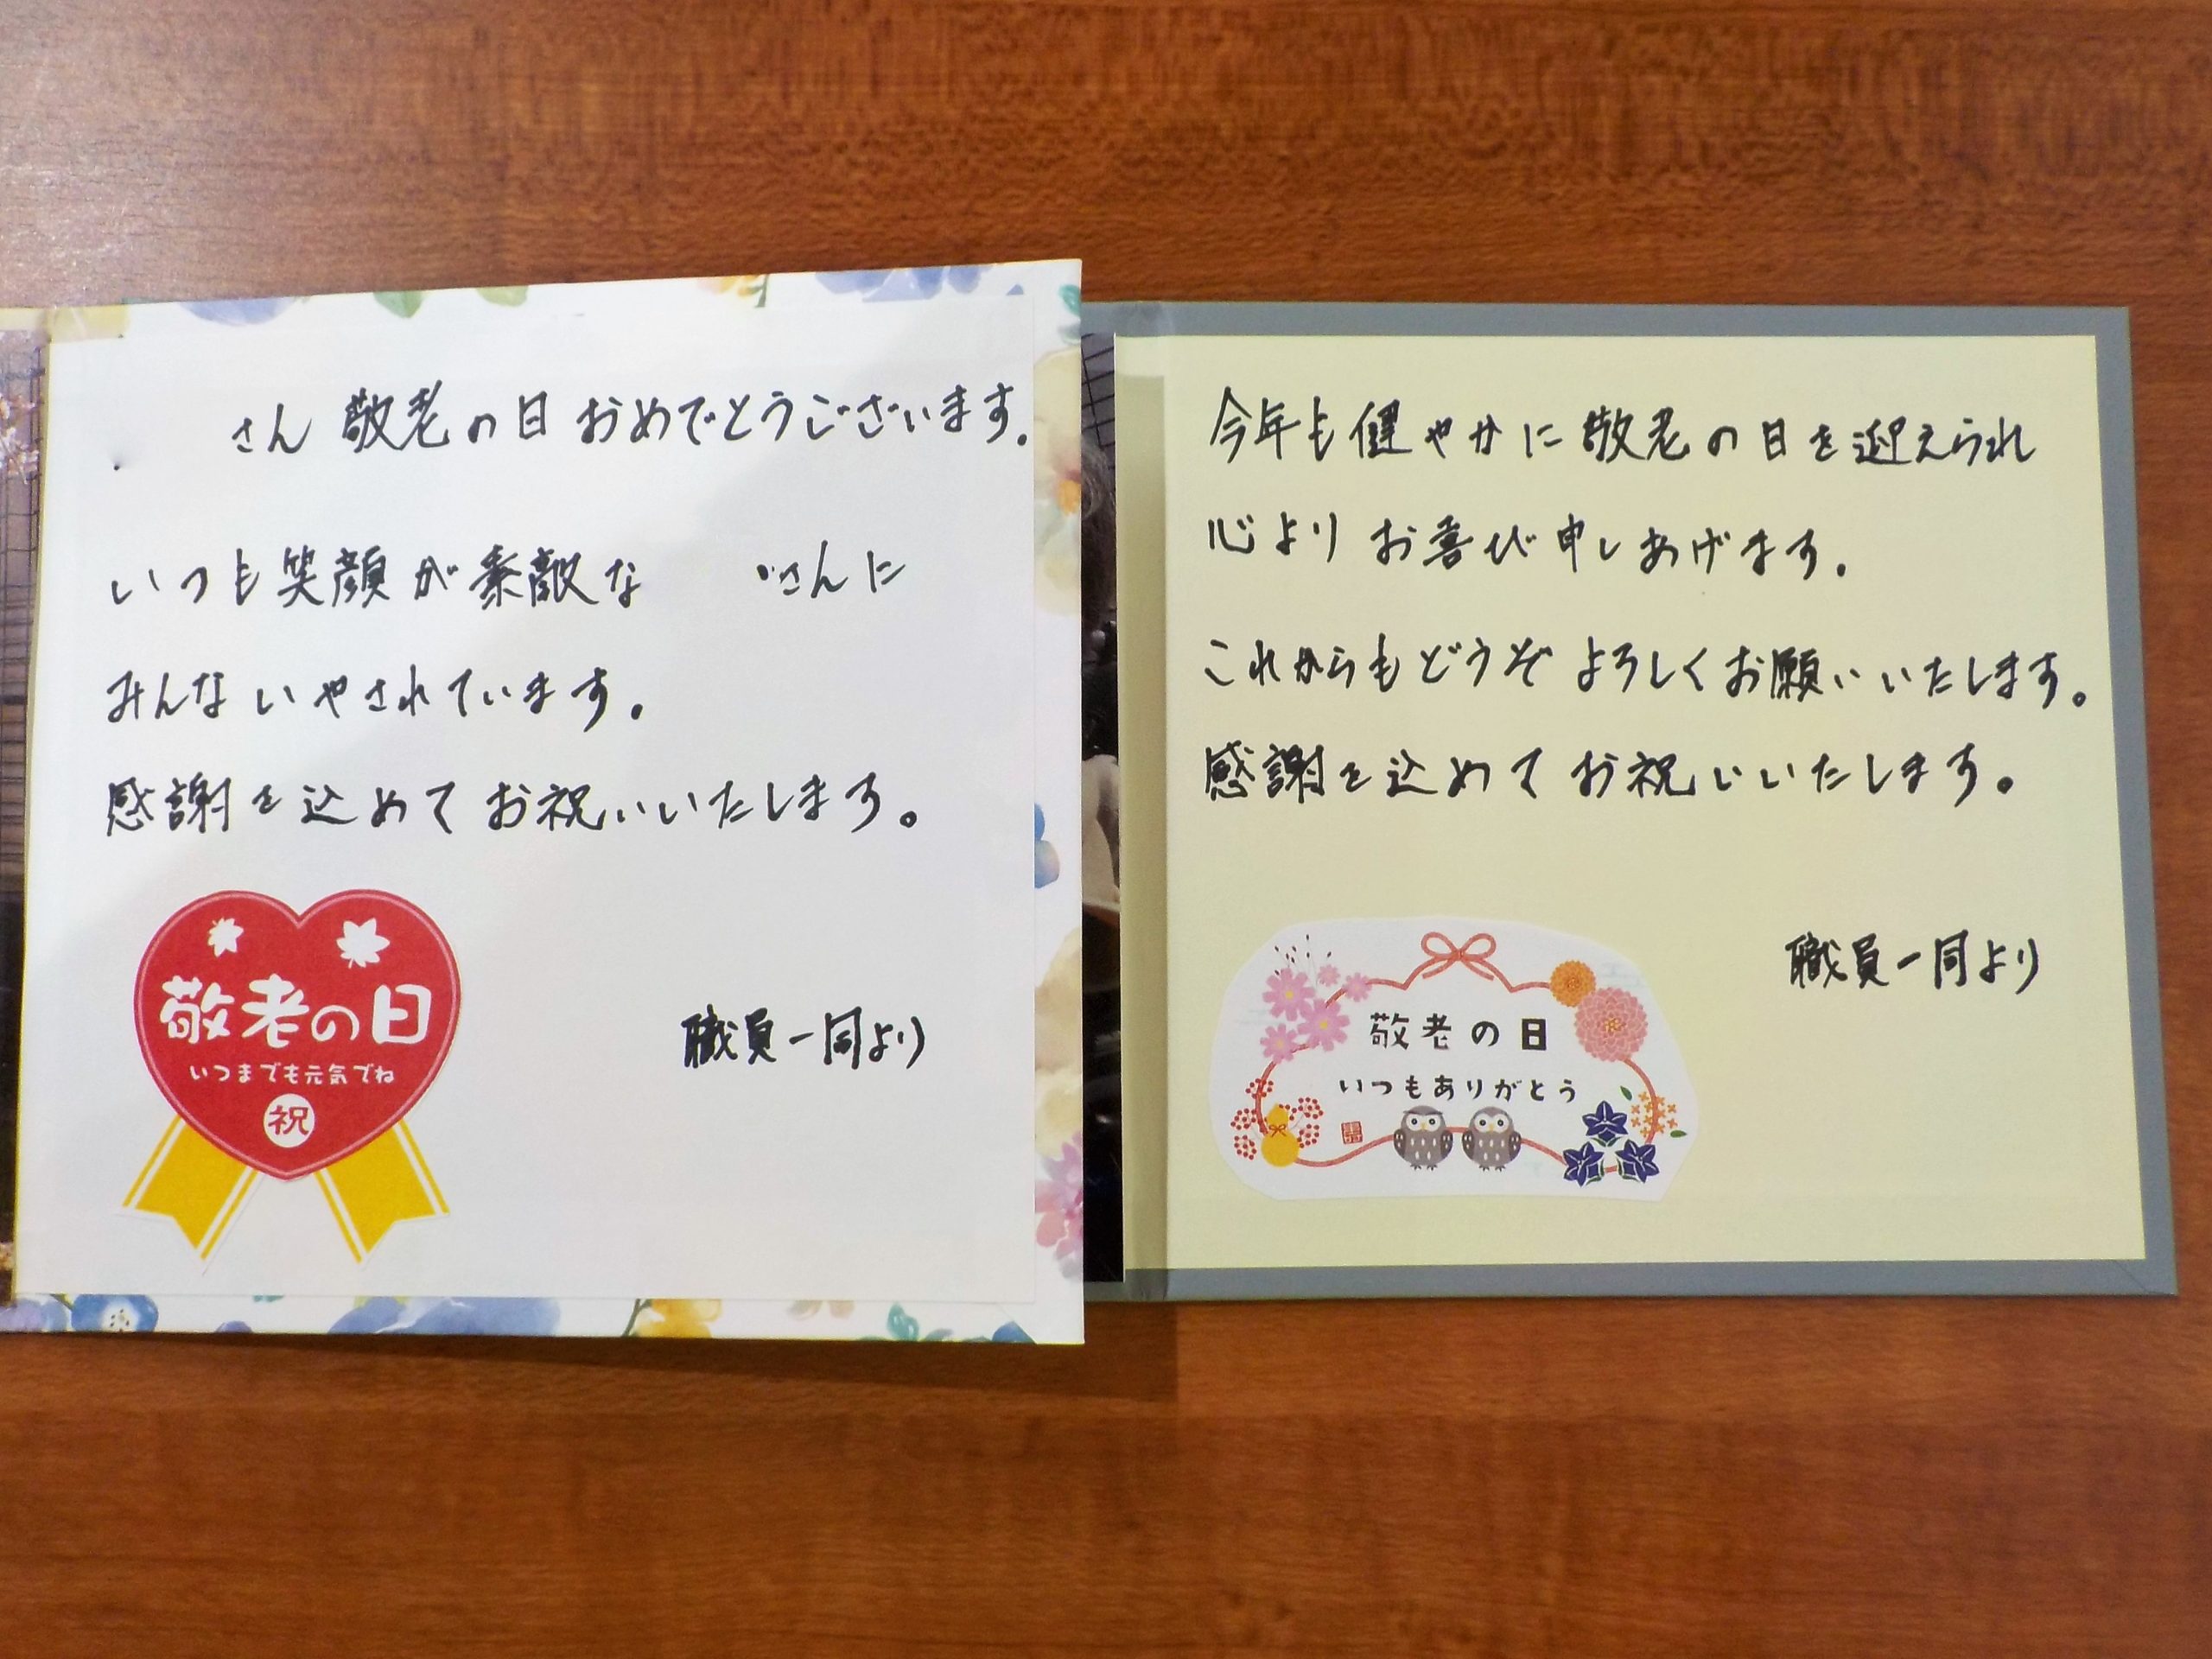 さん 敬老の日 おめでとうございます.
いつも笑顔が素敵な さんに
みんないやされています。
感謝を込めてお祝いいたします。
敬老の日
いつまでも元気でね
祝
職員一同より
今年も健やかに敬老の日を迎えられ
心よりお喜び申しあげます.
これからもどうぞよろしくお願いいたします。
感謝を込めてお祝いいたします。
職員一同より
敬老の日
いつもありがとう